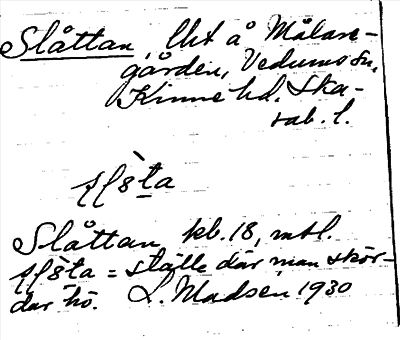 Slåttan, lht å Målare-
gården, Vedums sn,
Kinne hd. Ska-
rab. l.
Slåttan, kb. 18, mtl.
= ställe där man skör-
dar hö. L. Madsen 1930